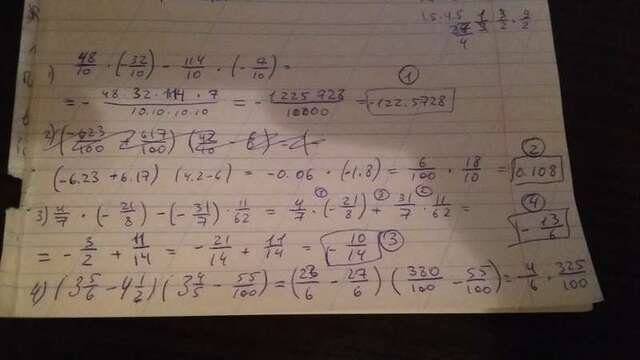 1) 48/10 · (-32/10) - 114/10 · (-7/10) =
= - 48·32·114·7 / 10·10·10·10 = - 1225728/10000 = -122.5728 ①
(-6.23 + 6.17) (4.2-6) = -0.06 · (-1.8) = 6/100 · 18/10 = 0.108 ②
3) 4/7 · (-21/8) - (-31/7) · 11/62 = 4/7 · (-21/8) + 31/7 · 11/62 =
= - 3/2 + 11/14 = - 21/14 + 11/14 = - 10/14 ③
- 13/6 ④
4) (3 5/6 - 4 1/2) (3 4/5 - 55/100) = (23/6 - 27/6) (380/100 - 55/100) = - 4/6 · 325/100